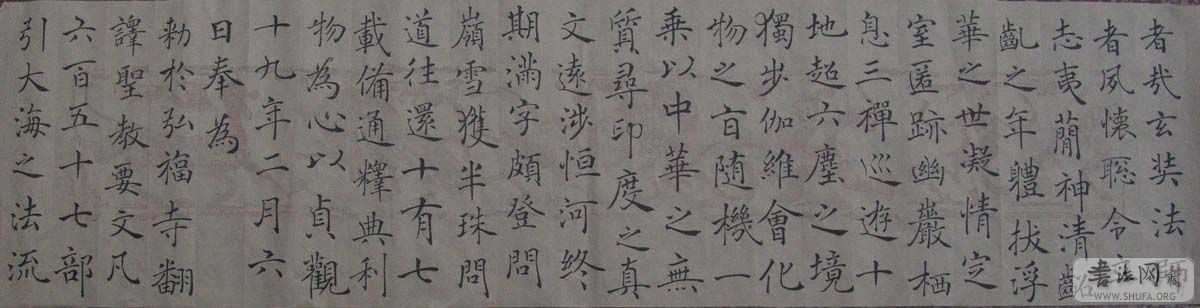 者哉玄奘法師
者夙懷聡令
志夷蕳神清齠
齓之年體拔浮
華之世凝情定
室匿跡幽巖栖
息三禪巡遊十
地超六塵之境
獨步伽維會化
物之旨随機一
乘以中華之無
質尋印度之真
文遠涉恒河終
期滿字頗登問
嶺雪獲半珠問
道往還十有七
載備通釋典利
物為心以貞觀
十九年二月六
日奉為
勅於弘福寺翻
譯聖教要文凡
六百五十七部
引大海之法流
書法网
WWW.SHUFA.ORG